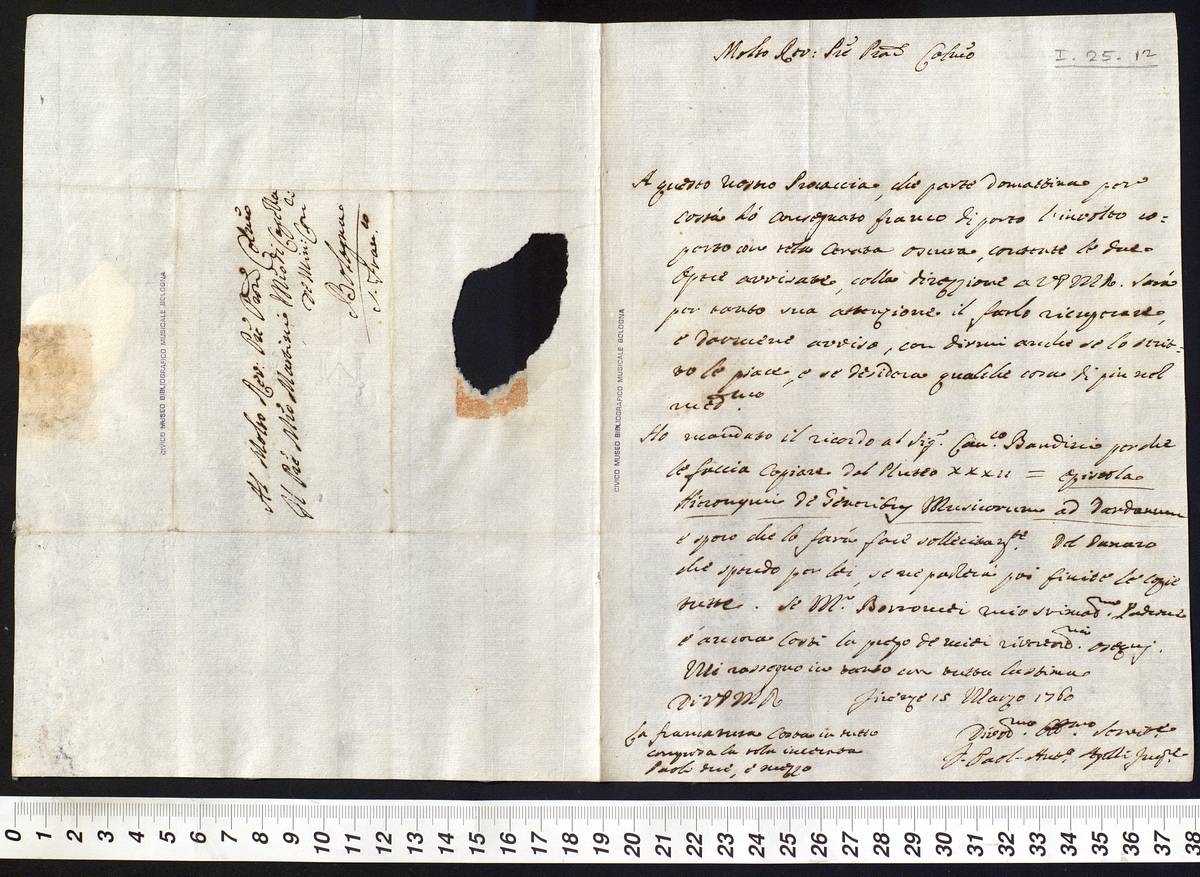 Al Molto Rev: Pre Pron Colmo
Il Pre Mro Martini Mro di Cappella
de Min: Con
Bologna
S. Franco
CIVICO MUSEO BIBLIOGRAFICO MUSICALE BOLOGNA
CIVICO MUSEO BIBLIOGRAFICO MUSICALE BOLOGNA
I. 25. 12
Molto Rev: Pre Pron Colmo
A questo nostro Procaccia, che parte domattina per
costà hò consegnato franco di porto l'involto co-
perto con tela cerata oscura, contente le due
Opere avvisate, colla direzzione a VPMR. Sarà
per tanto sua attenzione il farlo ricuperare,
e darmene avviso, con dirmi anche se lo scrit-
to le piace, e se desidera qualche cosa di piu nel
medmo.
Ho mandato il ricordo al Sigr. Canco Bandini perche
le faccia copiare dal Pluteo XXXII = Epistola
Hieronymi de Generibus Musicorum ad Dardanum
e spero che lo farà fare sollecitamte. Del danaro
che spendo per lei, se ne parlerà poi finite le copie
tutte. Se Mr. Borromei mio stimadmo Padrone
è ancora costì la prego de miei riverendmi ossequj.
Mi rassegno in tanto con tutta la stima
Di VPMR Firenze 15 Marzo 1760
Divotmo Obbmo Servite
F. Paol-Anto Agelli Inqre
La francatura costa in tutto
compresa la tela incerata
Paoli due, e mezzo
0 1 2 3 4 5 6 7 8 9 10 11 12 13 14 15 16 17 18 19 20 21 22 23 24 25 26 27 28 29 30 31 32 33 34 35 36 37 38